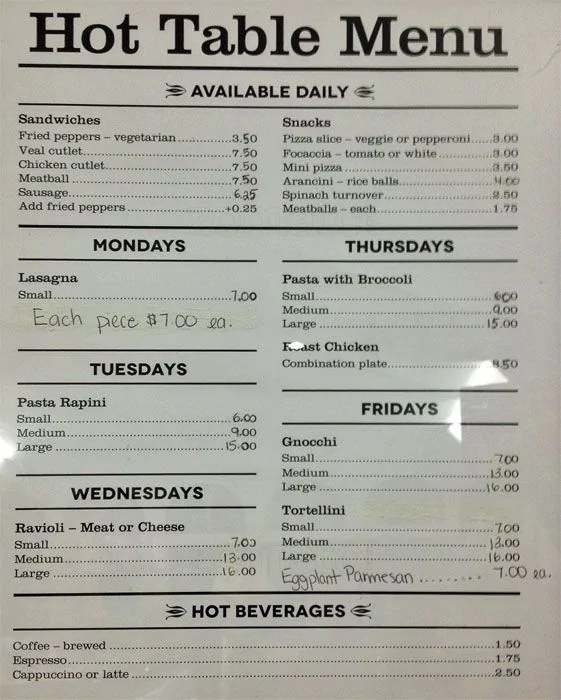 Hot Table Menu
AVAILABLE DAILY
Sandwiches
Fried peppers – vegetarian..............3.50
Veal cutlet..............7.50
Chicken cutlet..............7.50
Meatball..............7.50
Sausage..............6.25
Add fried peppers..............+0.25
Snacks
Pizza slice – veggie or pepperoni.....3.00
Focaccia – tomato or white..............3.00
Mini pizza..............3.50
Arancini – rice balls..............4.00
Spinach turnover..............2.50
Meatballs – each..............1.75
MONDAYS
Lasagna
Small..............7.00
Each piece $7.00 ea.
TUESDAYS
Pasta Rapini
Small..............6.00
Medium..............9.00
Large..............15.00
WEDNESDAYS
Ravioli – Meat or Cheese
Small..............7.00
Medium..............13.00
Large..............16.00
THURSDAYS
Pasta with Broccoli
Small..............6.00
Medium..............9.00
Large..............15.00
Roast Chicken
Combination plate..............8.50
FRIDAYS
Gnocchi
Small..............7.00
Medium..............13.00
Large..............16.00
Tortellini
Small..............7.00
Medium..............13.00
Large..............16.00
Eggplant Parmesan ........ 7.00 ea.
HOT BEVERAGES
Coffee – brewed..............1.50
Espresso..............1.75
Cappuccino or latte..............2.50